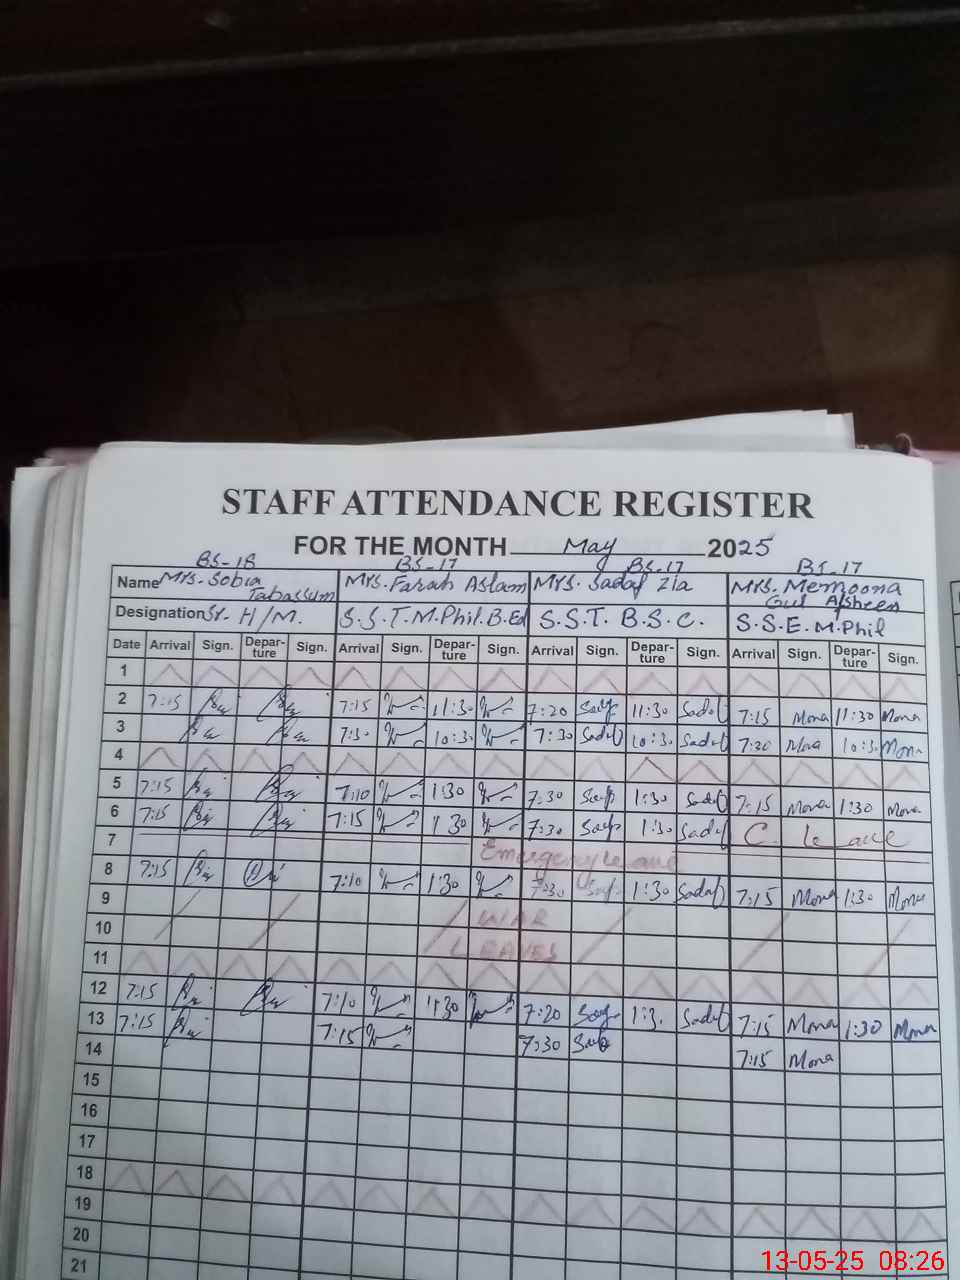 STAFF ATTENDANCE REGISTER
FOR THE MONTH May 2025
BS-18 BS-17 BS-17 BS-17
Name Mrs. Sobia Tabassum Mrs. Farah Aslam Mrs. Sadaf Zia Mrs. Memoona Gul Afsheen
Designation Sr. H/M. S.S.T. M.Phil. B.Ed S.S.T. B.S.C. S.S.E. M.Phil
Date Arrival Sign. Depar-ture Sign. Arrival Sign. Depar-ture Sign. Arrival Sign. Depar-ture Sign. Arrival Sign. Depar-ture Sign.
1
2 7:15 7:15 11:30 7:20 11:30 Sadaf 7:15 Mona 11:30 Mona
3 7:30 10:3. 7:30 Sadaf 10:3. Sadaf 7:30 Mona 10:3. Mona
4
5 7:15 7:10 1:30 7:30 1:30 Sadaf 7:15 Mona 1:30 Mona
6 7:15 7:15 1:30 7:30 1:30 Sadaf C. Leave
7 Emergency Leave
8 7:15 7:10 1:30 7:30 1:30 Sadaf 7:15 Mona 1:30 Mona
9 WAR
10 LEAVES
11
12 7:15 7:10 1:30 7:20 1:3. Sadaf 7:15 Mona 1:30 Mona
13 7:15 7:15 7:30 7:15 Mona
14
15
16
17
18
19
20
21
13-05-25 08:26